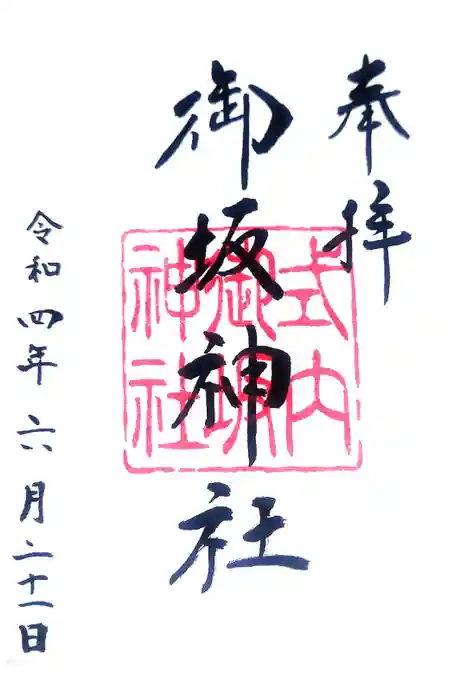 奉拝
式内
御坂
神社
御坂神社
令和四年六月二十一日